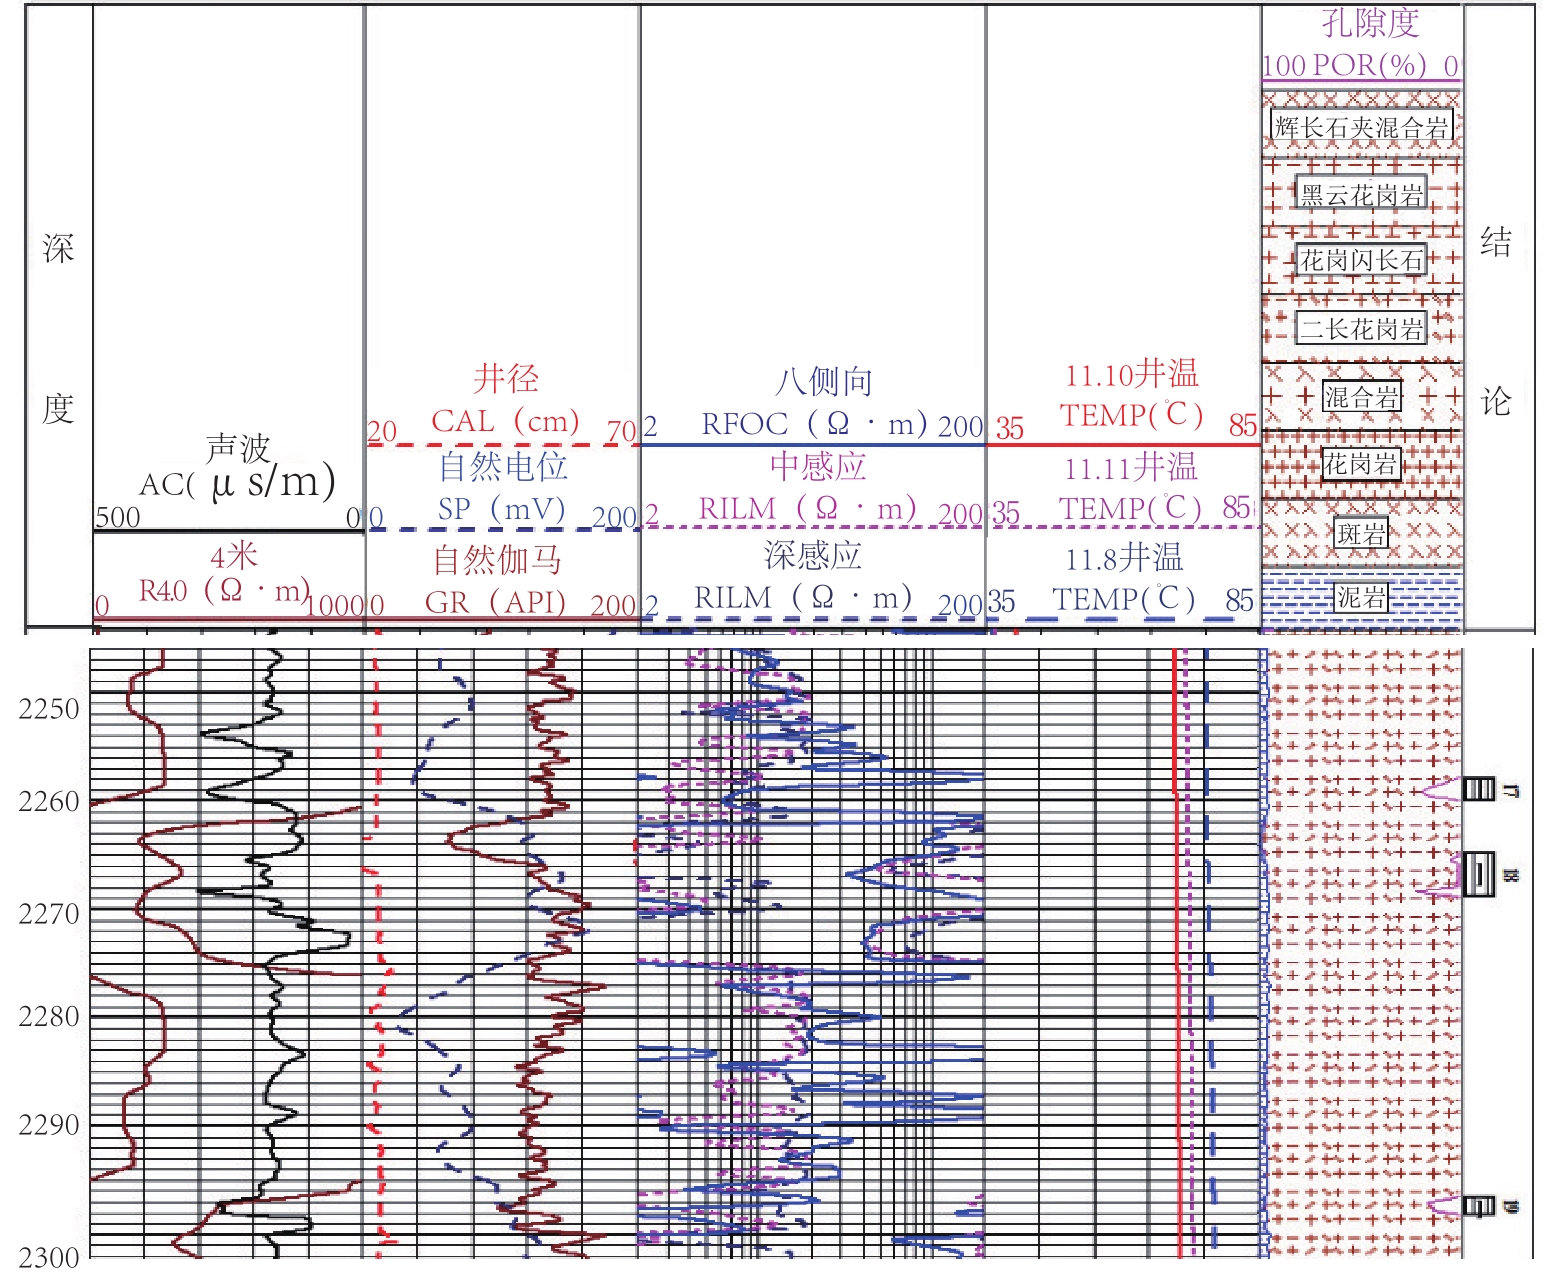 深
度
声波
AC( μ s/m)
500 0
4米
R4.0 (Ω · m)
0 1000
井径
CAL (cm)
20 70
自然电位
SP (mV)
0 200
自然伽马
GR (API)
0 200
八侧向
RFOC (Ω · m)
2 200
中感应
RILM (Ω · m)
2 200
深感应
RILM (Ω · m)
2 200
11.10井温
TEMP(℃)
35 85
11.11井温
TEMP(℃)
35 85
11.8井温
TEMP(℃)
35 85
孔隙度
100 POR(%) 0
辉长石夹混合岩
黑云花岗岩
花岗闪长石
二长花岗岩
混合岩
花岗岩
斑岩
泥岩
结
论
2250
2260
2270
2280
2290
2300
17
18
19